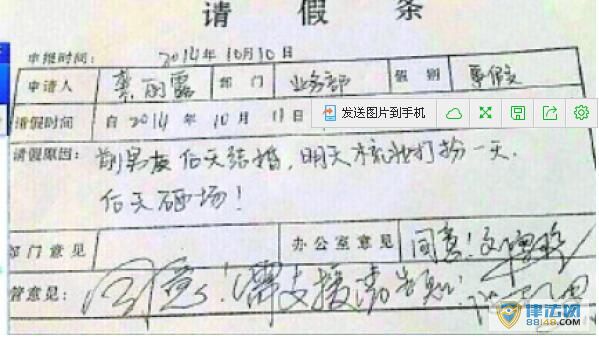 请假条
申报时间: 2014年10月10日
申请人 龚丽露 部门 业务部 假别 事假
请假时间 自 2014年10月11日 发送图片到手机
请假原因: 前男友后天结婚,明天梳妆打扮一天.
后天砸场!
部门意见 办公室意见 同意!
管意见: 同意!需支援请告知!
律法网
88148.com